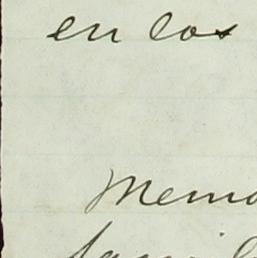 en los
Memo